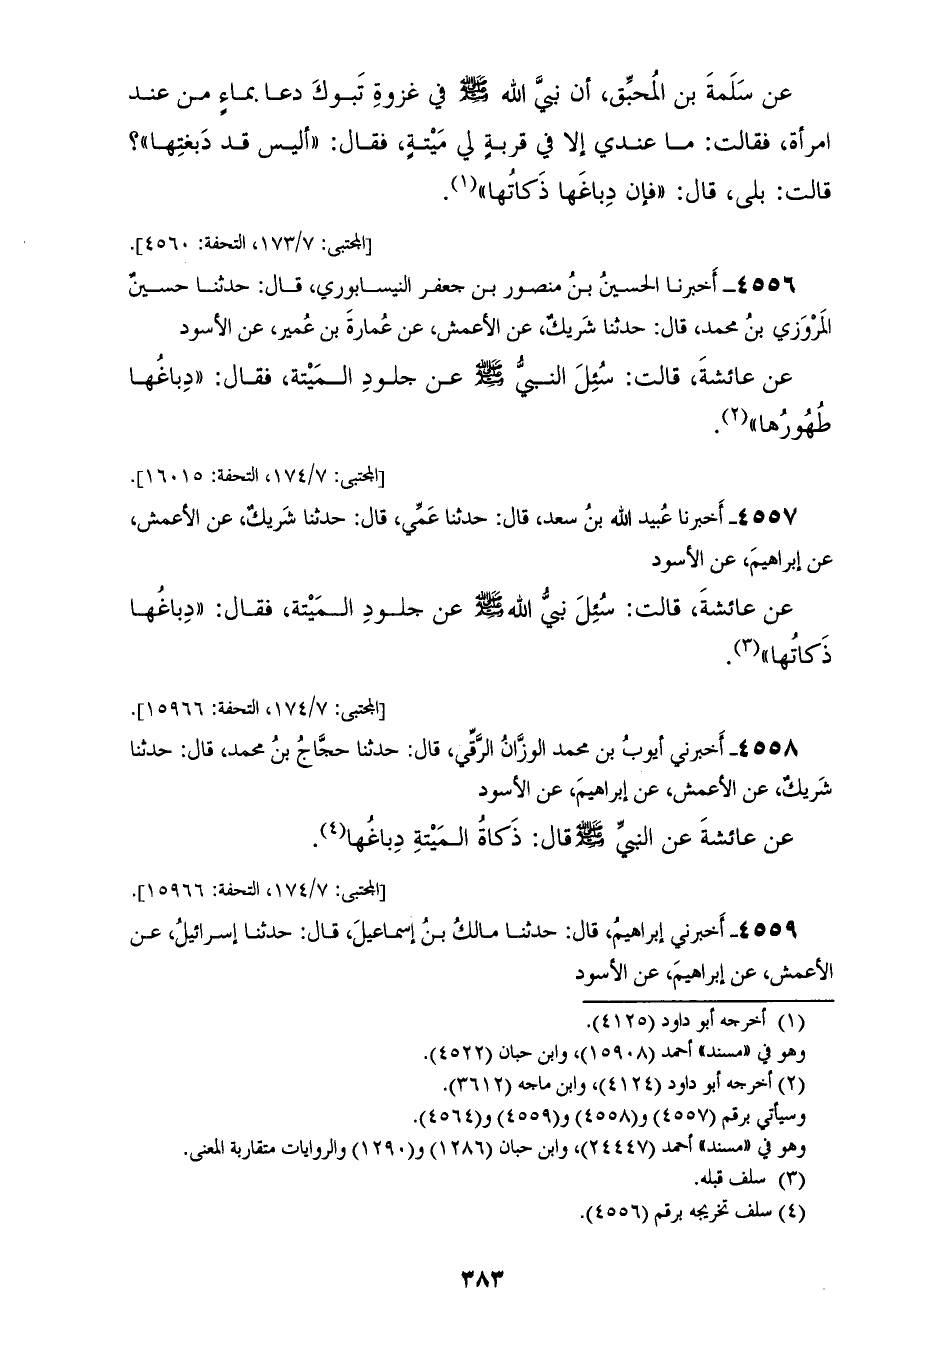 عن سَلَمةَ بن المُحبِّق، أن نبيَّ الله ﷺ في غزوةِ تَبوكَ دعا بماءٍ من عند
امرأة، فقالت: ما عندي إلا في قربةٍ لي مَيْتةٍ، فقال: «أليس قد دَبغتِها»؟
قالت: بلى، قال: «فإن دِباغَها ذَكاتُها»(١).
[المجتبى: ١٧٣/٧، التحفة: ٤٥٦٠].
٤٥٥٦ـ أَخبرنا الحسينُ بنُ منصور بن جعفر النيسابوري، قال: حدثنا حسينٌ
المَرْوَزي بنُ محمد، قال: حدثنا شَريكٌ، عن الأعمش، عن عُمارةَ بن عُمير، عن الأسود
عن عائشةَ، قالت: سُئِلَ النبيُّ ﷺ عن جلودِ المَيْتة، فقال: «دِباغُها
طُهُورُها»(٢).
[المجتبى: ١٧٤/٧، التحفة: ١٦٠١٥].
٤٥٥٧ـ أَخبرنا عُبيد الله بنُ سعد، قال: حدثنا عَمِّي، قال: حدثنا شَريكٌ، عن الأعمش،
عن إبراهيمَ، عن الأسود
عن عائشةَ، قالت: سُئِلَ نبيُّ الله ﷺ عن جلودِ المَيْتة، فقال: «دِباغُها
ذَكاتُها»(٣).
[المجتبى: ١٧٤/٧، التحفة: ١٥٩٦٦].
٤٥٥٨ـ أَخبرني أيوبُ بن محمد الوزَّانُ الرَّقِّي، قال: حدثنا حجَّاجُ بنُ محمد، قال: حدثنا
شَريكٌ، عن الأعمش، عن إبراهيمَ، عن الأسود
عن عائشةَ عن النبيِّ ﷺ قال: ذَكاةُ المَيْتةِ دِباغُها(٤).
[المجتبى: ١٧٤/٧، التحفة: ١٥٩٦٦].
٤٥٥٩ـ أَخبرني إبراهيمُ، قال: حدثنا مالكُ بنُ إسماعيلَ، قال: حدثنا إسرائيلُ، عن
الأعمش، عن إبراهيمَ، عن الأسود
(١) أخرجه أبو داود (٤١٢٥).
وهو في «مسند» أحمد (١٥٩٠٨)، وابن حبان (٤٥٢٢).
(٢) أخرجه أبو داود (٤١٢٤)، وابن ماجه (٣٦١٢).
وسيأتي برقم (٤٥٥٧) و(٤٥٥٨) و(٤٥٥٩) و(٤٥٦٤).
وهو في «مسند» أحمد (٢٤٤٤٧)، وابن حبان (١٢٨٦) و(١٢٩٠) والروايات متقاربة المعنى.
(٣) سلف قبله.
(٤) سلف تخريجه برقم (٤٥٥٦).
٣٨٣